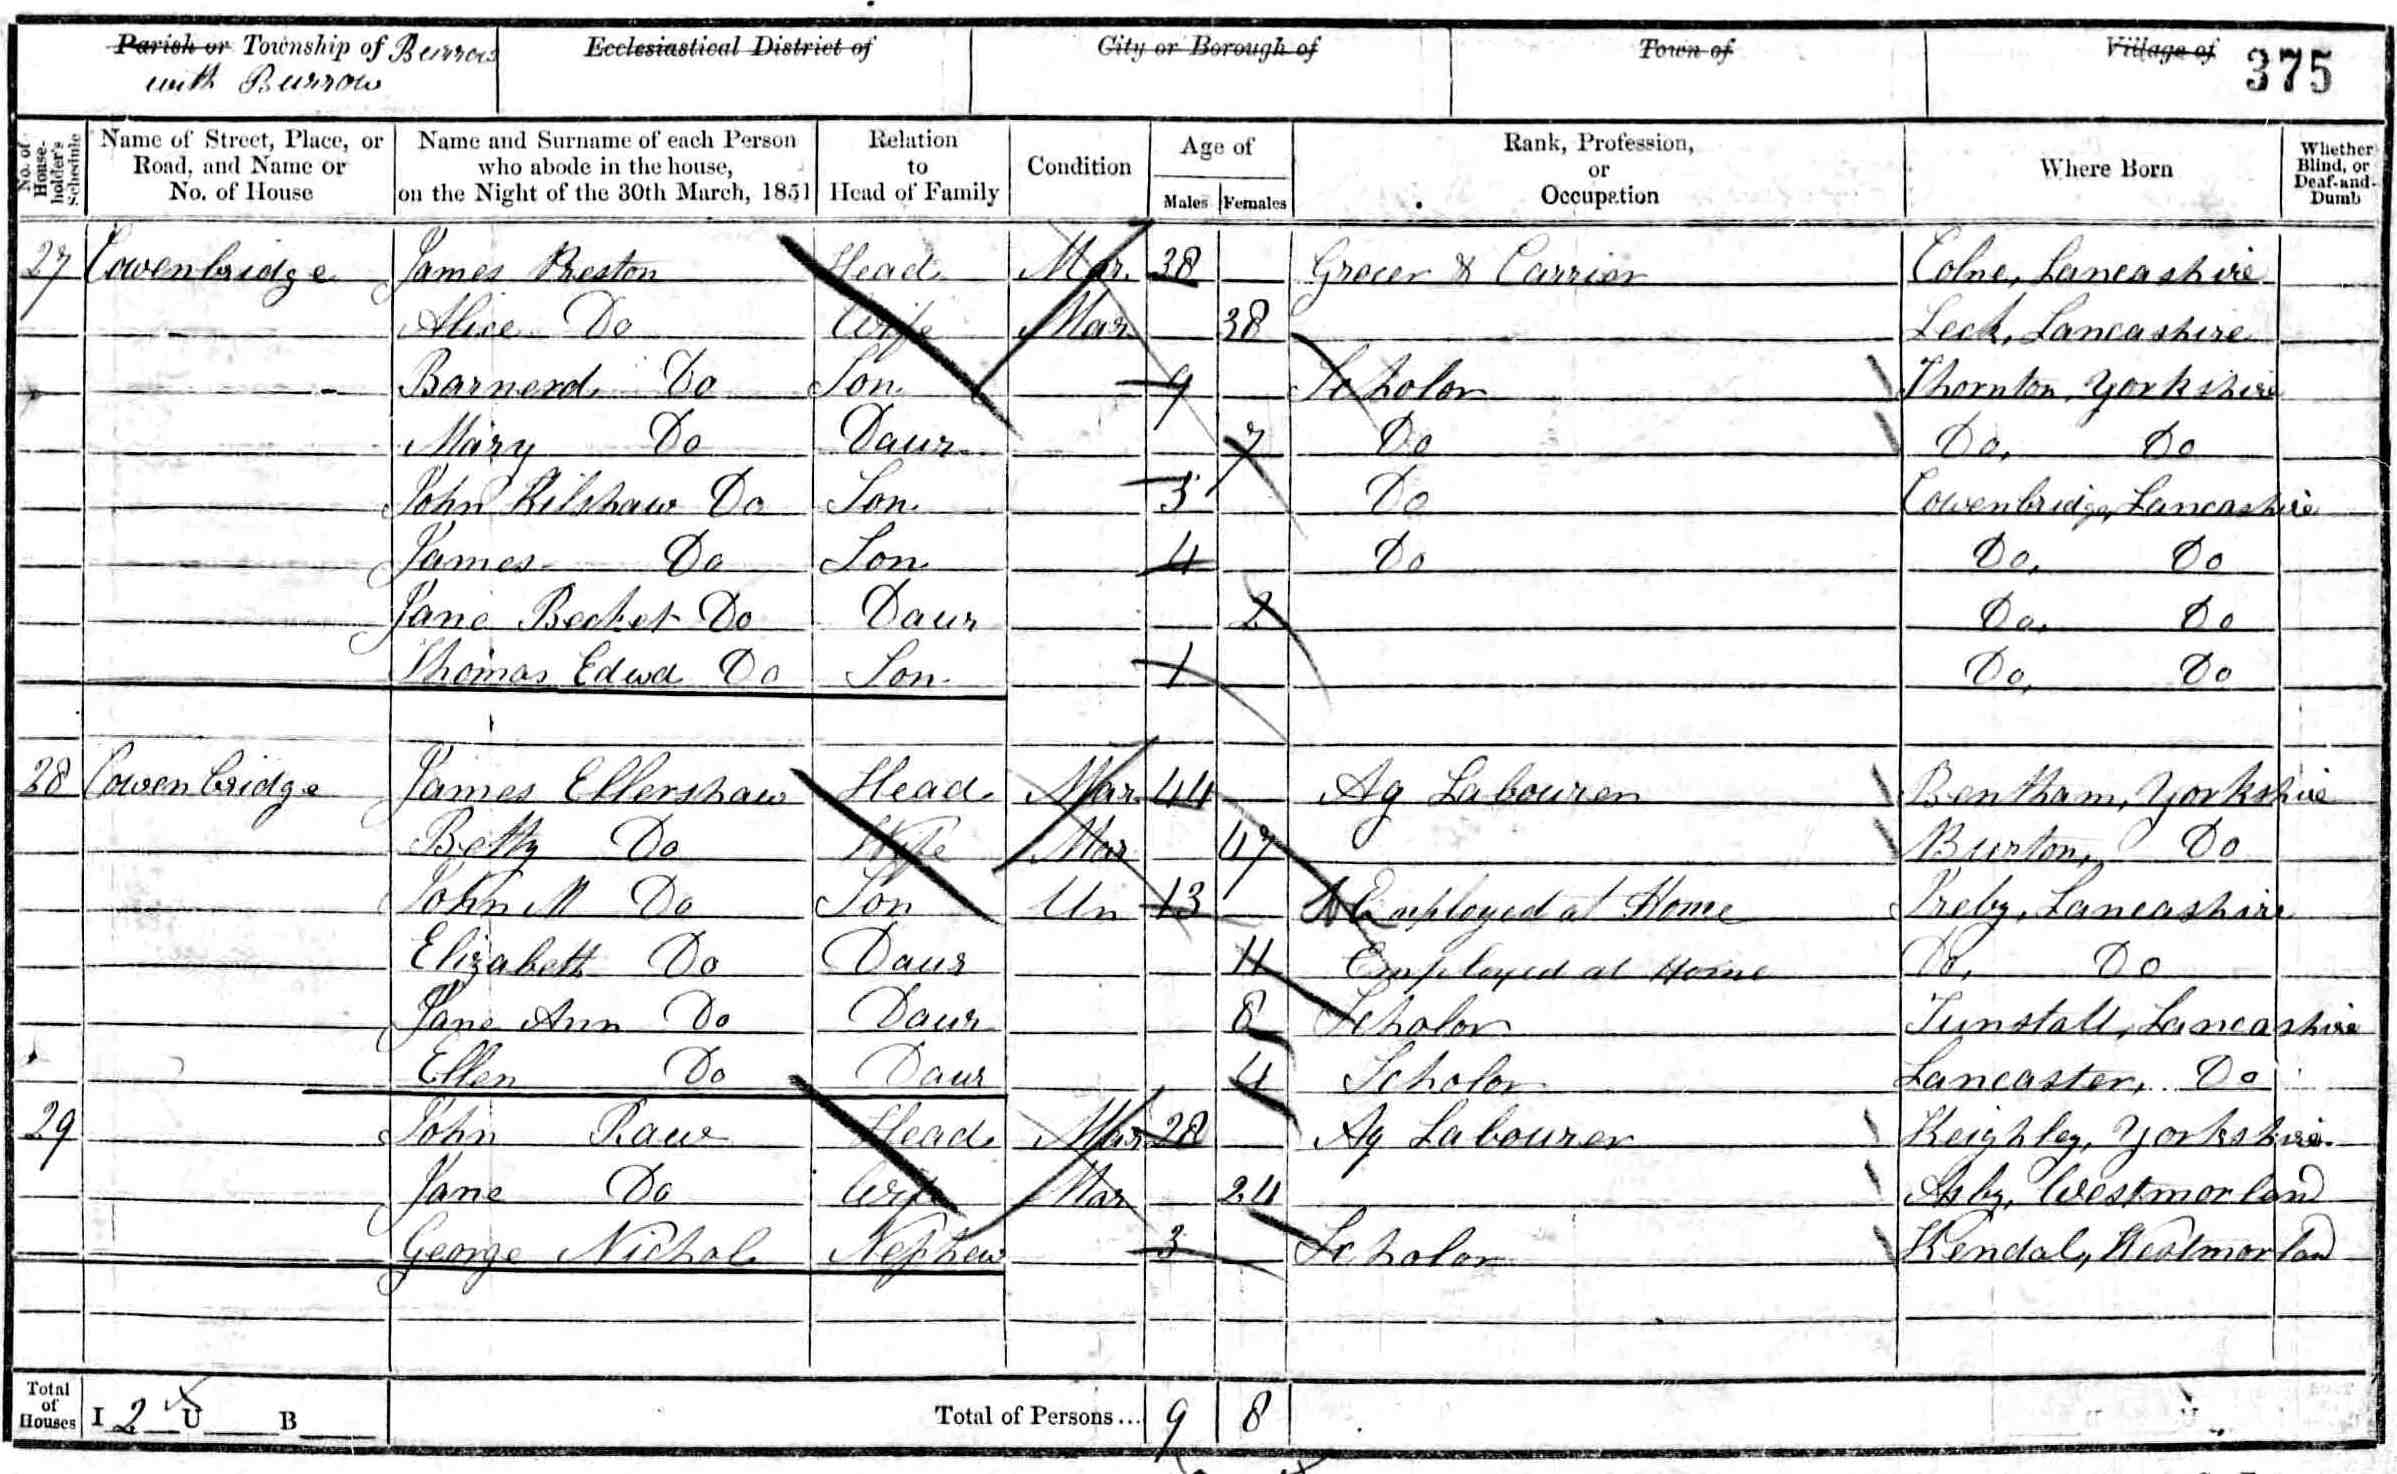 Parish or Township of Burrow with Burrow
Ecclesiastical District of
City or Borough of
Town of
Village of
375
No. of House-holder's Schedule
Name of Street, Place, or Road, and Name or No. of House
Name and Surname of each Person who abode in the house, on the Night of the 30th March, 1851
Relation to Head of Family
Condition
Age of
Males
Females
Rank, Profession, or Occupation
Where Born
Whether Blind, or Deaf-and-Dumb
27 Cowenbridge James Preston Head Mar. 38 Grocer & Carrier Colne, Lancashire
Alice Do Wife Mar 38 Leck, Lancashire
Barnerd Do Son 9 Scholor Thornton, Yorkshire
Mary Do Daur 7 Do Do, Do
John Kilshaw Do Son 5 Do Cowenbridge, Lancashire
James Do Son 4 Do Do, Do
Jane Becket Do Daur 2 Do, Do
Thomas Edwd Do Son 1 Do, Do
28 Cowenbridge James Ellershaw Head Mar 44 Ag Labourer Bentham, Yorkshire
Betty Do Wife Mar 47 Burton, Do
John M Do Son Un 13 Employed at Home Ireby, Lancashire
Elizabeth Do Daur 11 Employed at Home Do, Do
Jane Ann Do Daur 8 Scholor Tunstall, Lancashire
Ellen Do Daur 4 Scholor Lancaster, Do
29 John Raw Head Mar 28 Ag Labourer Keighley, Yorkshire
Jane Do Wife Mar 24 Asby, Westmorland
George Nichol Nephew 3 Scholor Kendal, Westmorland
Total of Houses I 2 U B Total of Persons... 9 8